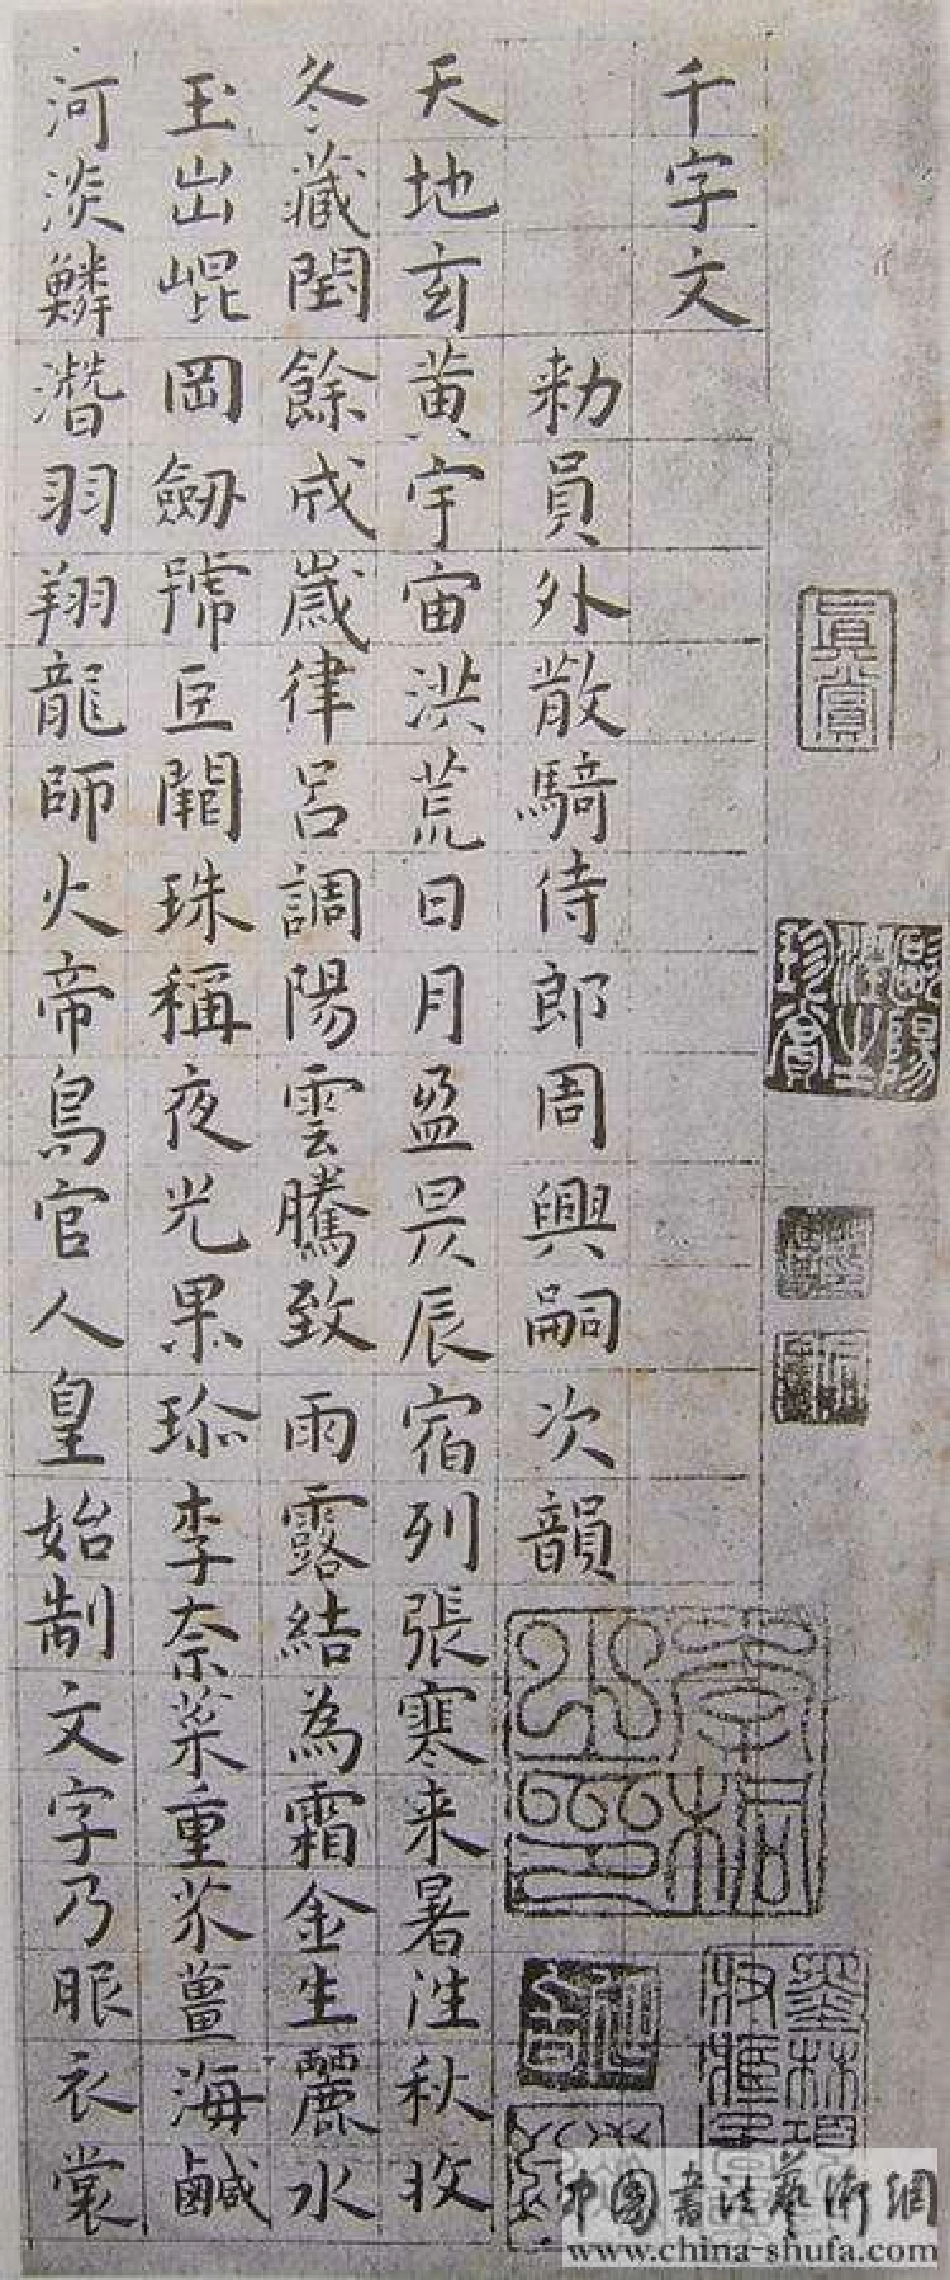 千字文
勑員外散騎侍郎周興嗣次韻
天地玄黃宇宙洪荒日月盈昃辰宿列張寒来暑往秋收
冬藏閏餘成歲律呂調陽雲騰致雨露結為霜金生麗水
玉出崐岡劒號巨闕珠稱夜光果珎李柰菜重芥薑海鹹
河淡鱗潛羽翔龍師火帝鳥官人皇始制文字乃服衣裳
真賞
中国書法藝術網
www.china-shufa.com